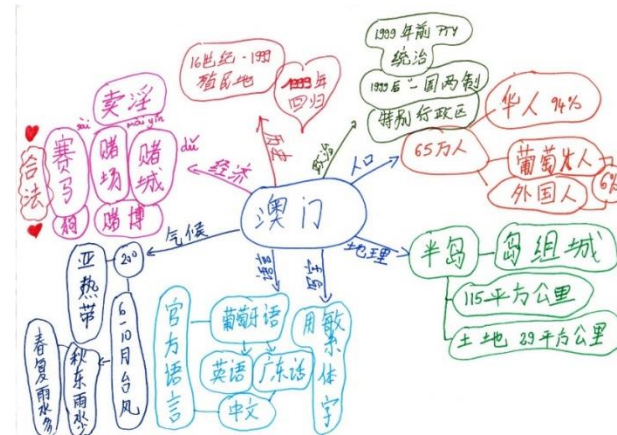 澳门
历史
16世纪-1999
殖民地
1999年
回归
政治
1999年前 PTY
统治
1999后"一国两制
特别行政区
人口
65万人
华人 94%
葡萄牙人
外国人
6%
地理
半岛
岛组城
115平方公里
土地 29平方公里
字写
用繁体字
语言
官方语言
葡萄牙语
英语
广东话
中文
气候
20°
亚热带
6-10月台风
秋东雨水少
春夏雨水多
经济
卖淫
mài yín
sài
赛马
赌场
赌城
dǔ
狗
赌博
合法